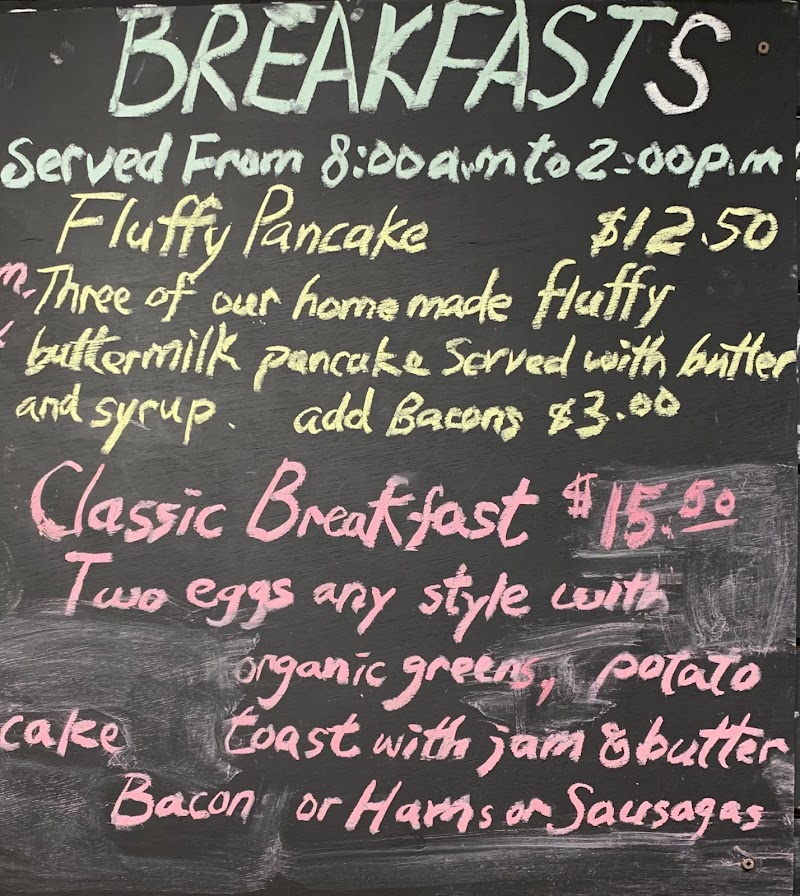 BREAKFASTS
Served From 8:00a.m to 2:00p.m
Fluffy Pancake $12.50
Three of our home made fluffy
buttermilk pancake Served with butter
and syrup. add Bacons $3.00
Classic Breakfast $15.50
Two eggs any style with
organic greens, potato
cake toast with jam & butter
Bacon or Hams or Sausagas